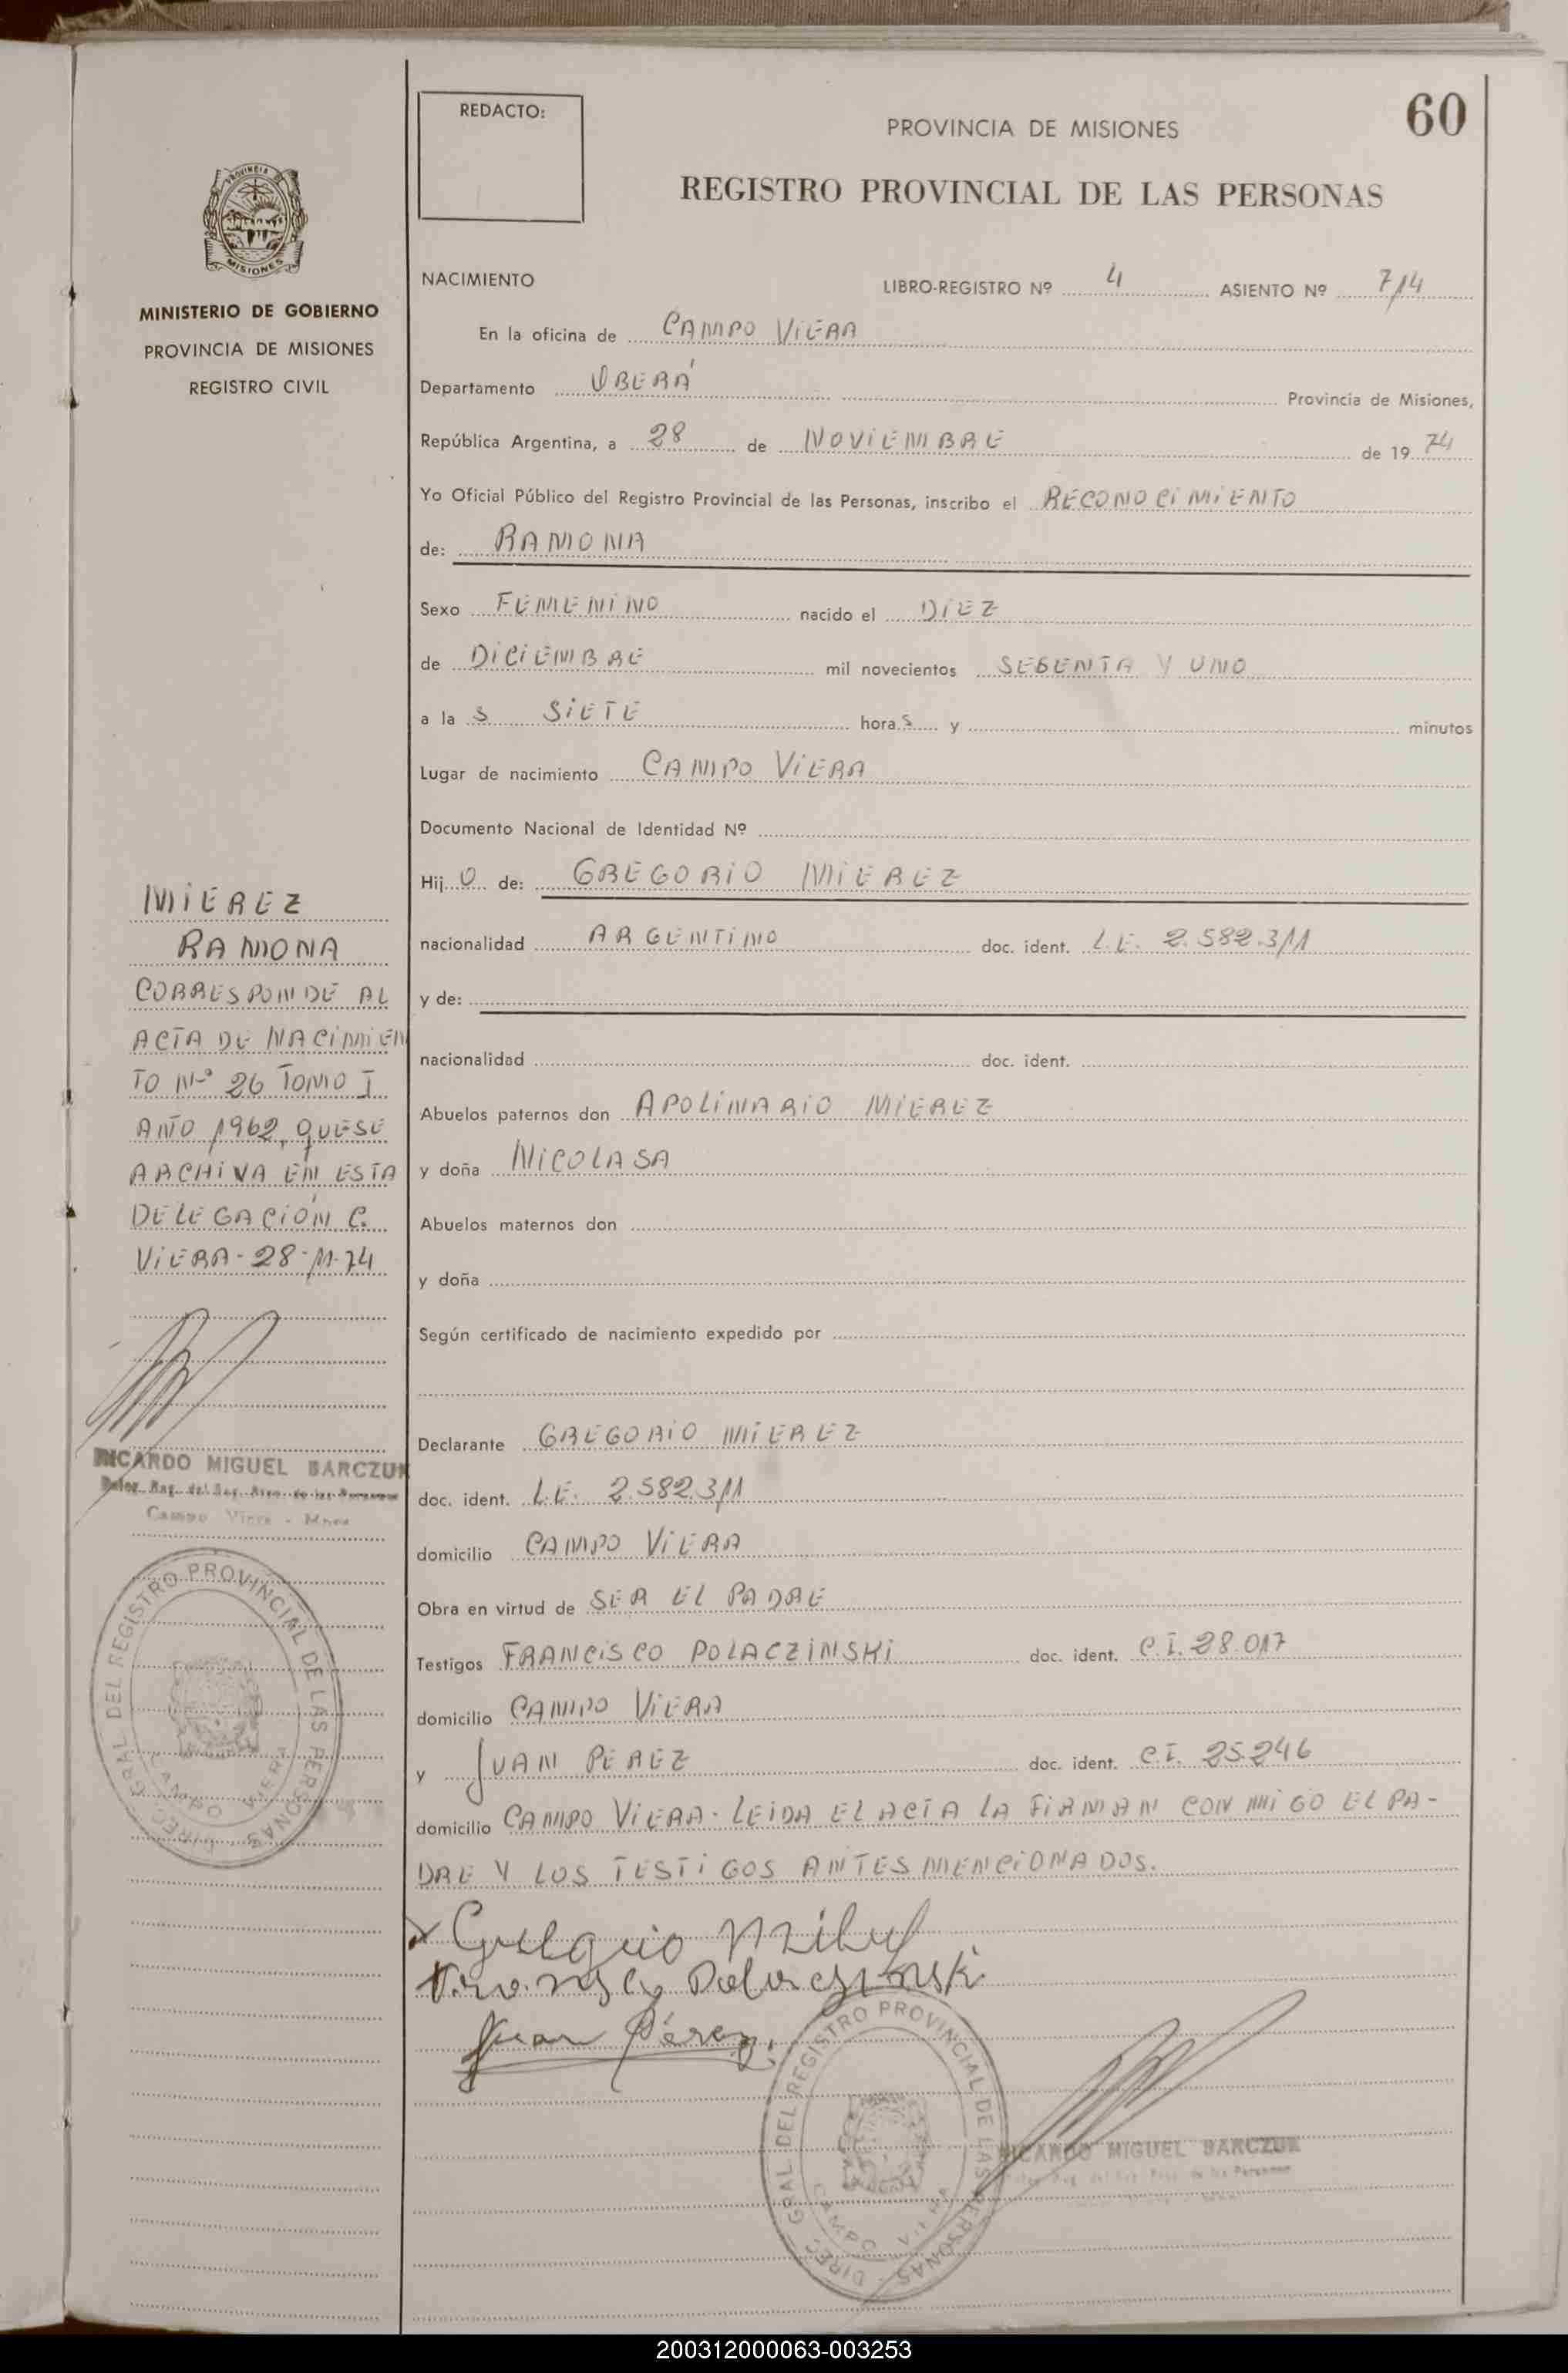 REDACTO:
PROVINCIA DE MISIONES
60
REGISTRO PROVINCIAL DE LAS PERSONAS
PROVINCIA DE
MISIONES
MINISTERIO DE GOBIERNO
PROVINCIA DE MISIONES
REGISTRO CIVIL
NACIMIENTO
LIBRO-REGISTRO Nº 4 ASIENTO Nº 714
En la oficina de CAMPO VIERA
Departamento OBERÁ Provincia de Misiones,
República Argentina, a 28 de NOVIEMBRE de 19 74
Yo Oficial Público del Registro Provincial de las Personas, inscribo el RECONOCIMIENTO
de: RAMONA
Sexo FEMENINO nacido el DIEZ
de DICIEMBRE mil novecientos SESENTA Y UNO
a la S SIETE hora S y minutos
Lugar de nacimiento CAMPO VIERA
Documento Nacional de Identidad Nº
Hij O de: GREGORIO MIEREZ
nacionalidad ARGENTINO doc. ident. L.E. 2.582.311
y de:
nacionalidad doc. ident.
Abuelos paternos don APOLINARIO MIEREZ
y doña NICOLASA
Abuelos maternos don
y doña
Según certificado de nacimiento expedido por
Declarante GREGORIO MIEREZ
doc. ident. L.E. 2.582.311
domicilio CAMPO VIERA
Obra en virtud de SER EL PADRE
Testigos FRANCISCO POLACZINSKI doc. ident. C.I. 28.017
domicilio CAMPO VIERA
y JUAN PEREZ doc. ident. C.I. 25.246
domicilio CAMPO VIERA - LEIDA EL ACTA LA FIRMAN CON MIGO EL PA-
DRE Y LOS TESTIGOS ANTES MENCIONADOS.
Juan Pérez
MIEREZ
RAMONA
CORRESPONDE AL
ACTA DE NACIMIEN
TO Nº 26 TOMO I
AÑO 1962, QUE SE
ARCHIVA EN ESTA
DELEGACIÓN C.
VIERA - 28-11-74
RICARDO MIGUEL BARCZUK
Campo Viera - Mnes
DIREC. GRAL DEL REGISTRO PROVINCIAL DE LAS PERSONAS
CAMPO VIERA
DIREC. GRAL DEL REGISTRO PROVINCIAL DE LAS PERSONAS
CAMPO VIERA
RICARDO MIGUEL BARCZUK
200312000063-003253